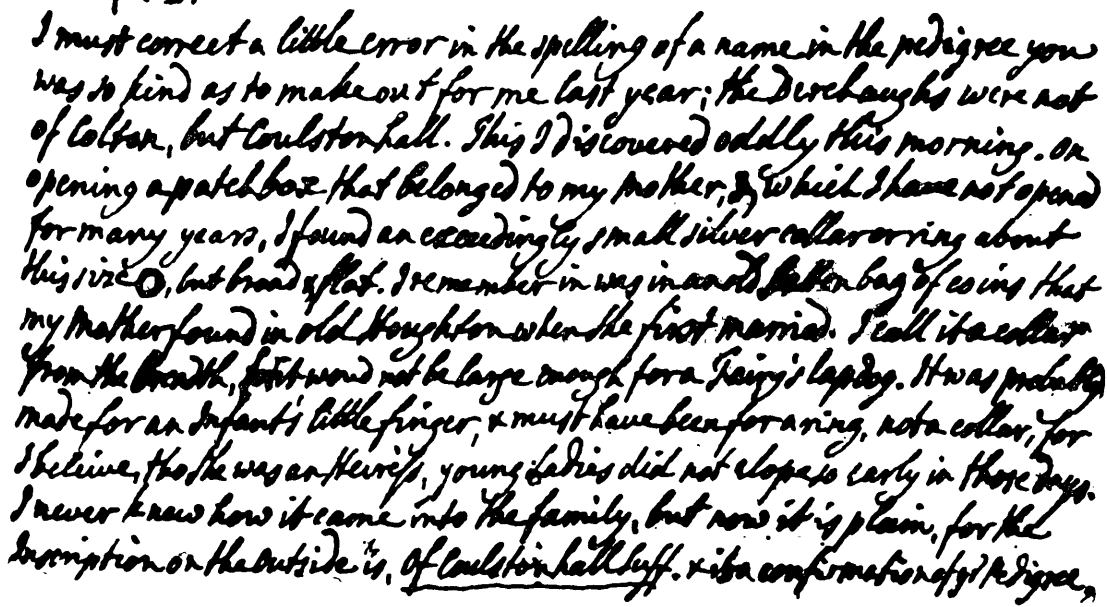 I must correct a little error in the spelling of a name in the pedigree you
was so kind as to make out for me last year; the Derehaughs were not
of Colton, but Coulston hall. This I discovered oddly this morning. On
opening a patch box that belonged to my Mother, & which I have not opened
for many years, I found an exceedingly small silver collar or ring about
this size O, but broad & flat. I remember in was in an old bag of coins that
my Mother found in old Houghton when she first married. I call it a collar
from the breadth, for it woud not be large enough for a Fairy's lap dog. It was probably
made for an Infant's little finger, & must have been for a ring, not a collar, for
I beleive, tho she was an Heiress, young Ladies did not elope so early in those days.
I never knew how it came into the family, but now it is plain, for the
Inscription on the outside is, Of Coulston hall Suff. & it is a confirmation of yr Pedigree,